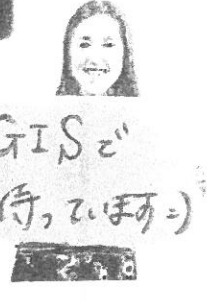 GISで
待っています:)